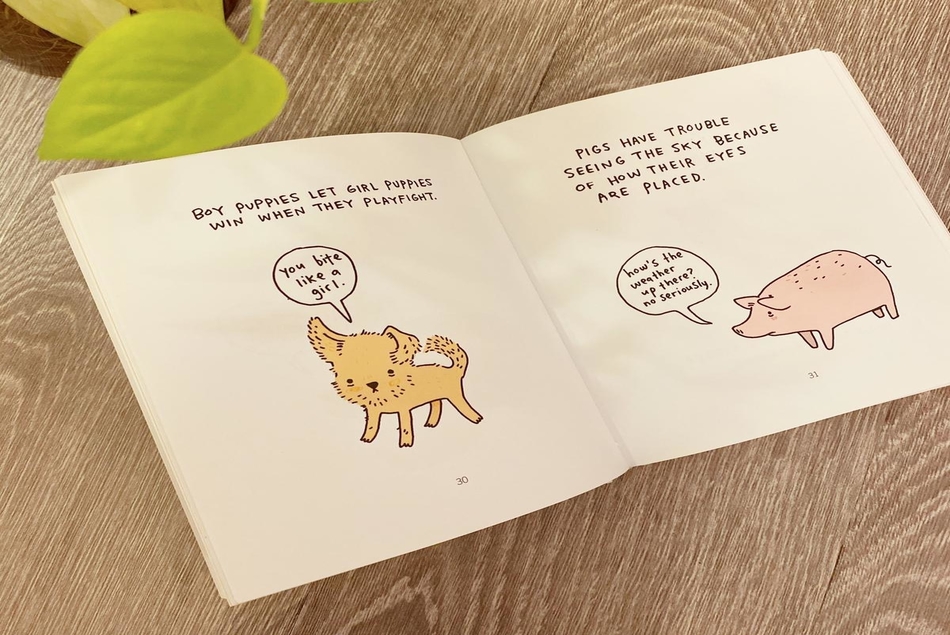 BOY PUPPIES LET GIRL PUPPIES
WIN WHEN THEY PLAYFIGHT.
you bite
like a
girl.
30
PIGS HAVE TROUBLE
SEEING THE SKY BECAUSE
OF HOW THEIR EYES
ARE PLACED.
how's the
weather
up there?
no seriously.
31